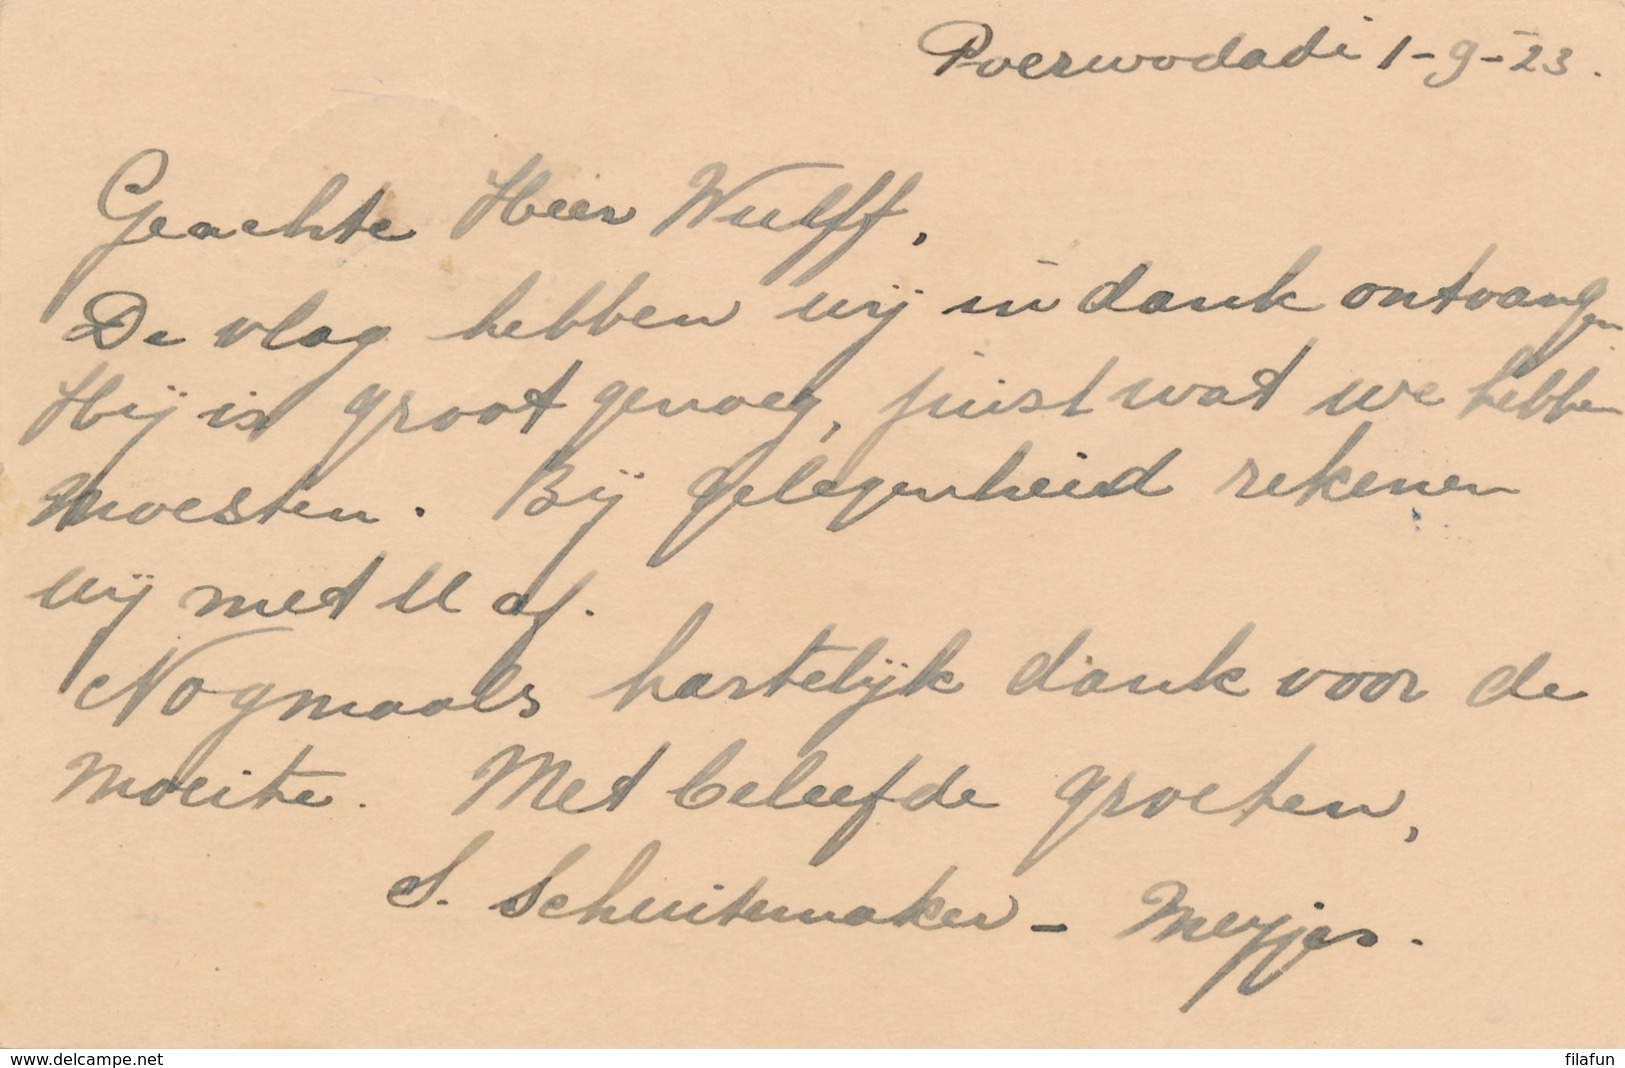 Poerwodadi 1-9-23.
Geachte Heer Wulff,
De vlag hebben wij in dank ontvangen
Hij is groot genoeg, juist wat we hebben
moesten. Bij gelegenheid rekenen
wij met U af.
Nogmaals hartelijk dank voor de
moeite. Met beleefde groeten,
S. Schuitemaker - Meyjes.
www.delcampe.net
filafun